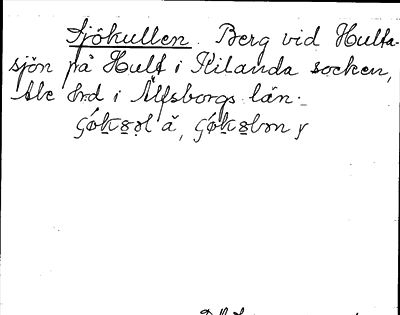 Sjökullen. Berg vid Hulta-
sjön på Hult i Kilanda socken,
Ale hrd i Älfsborgs län.